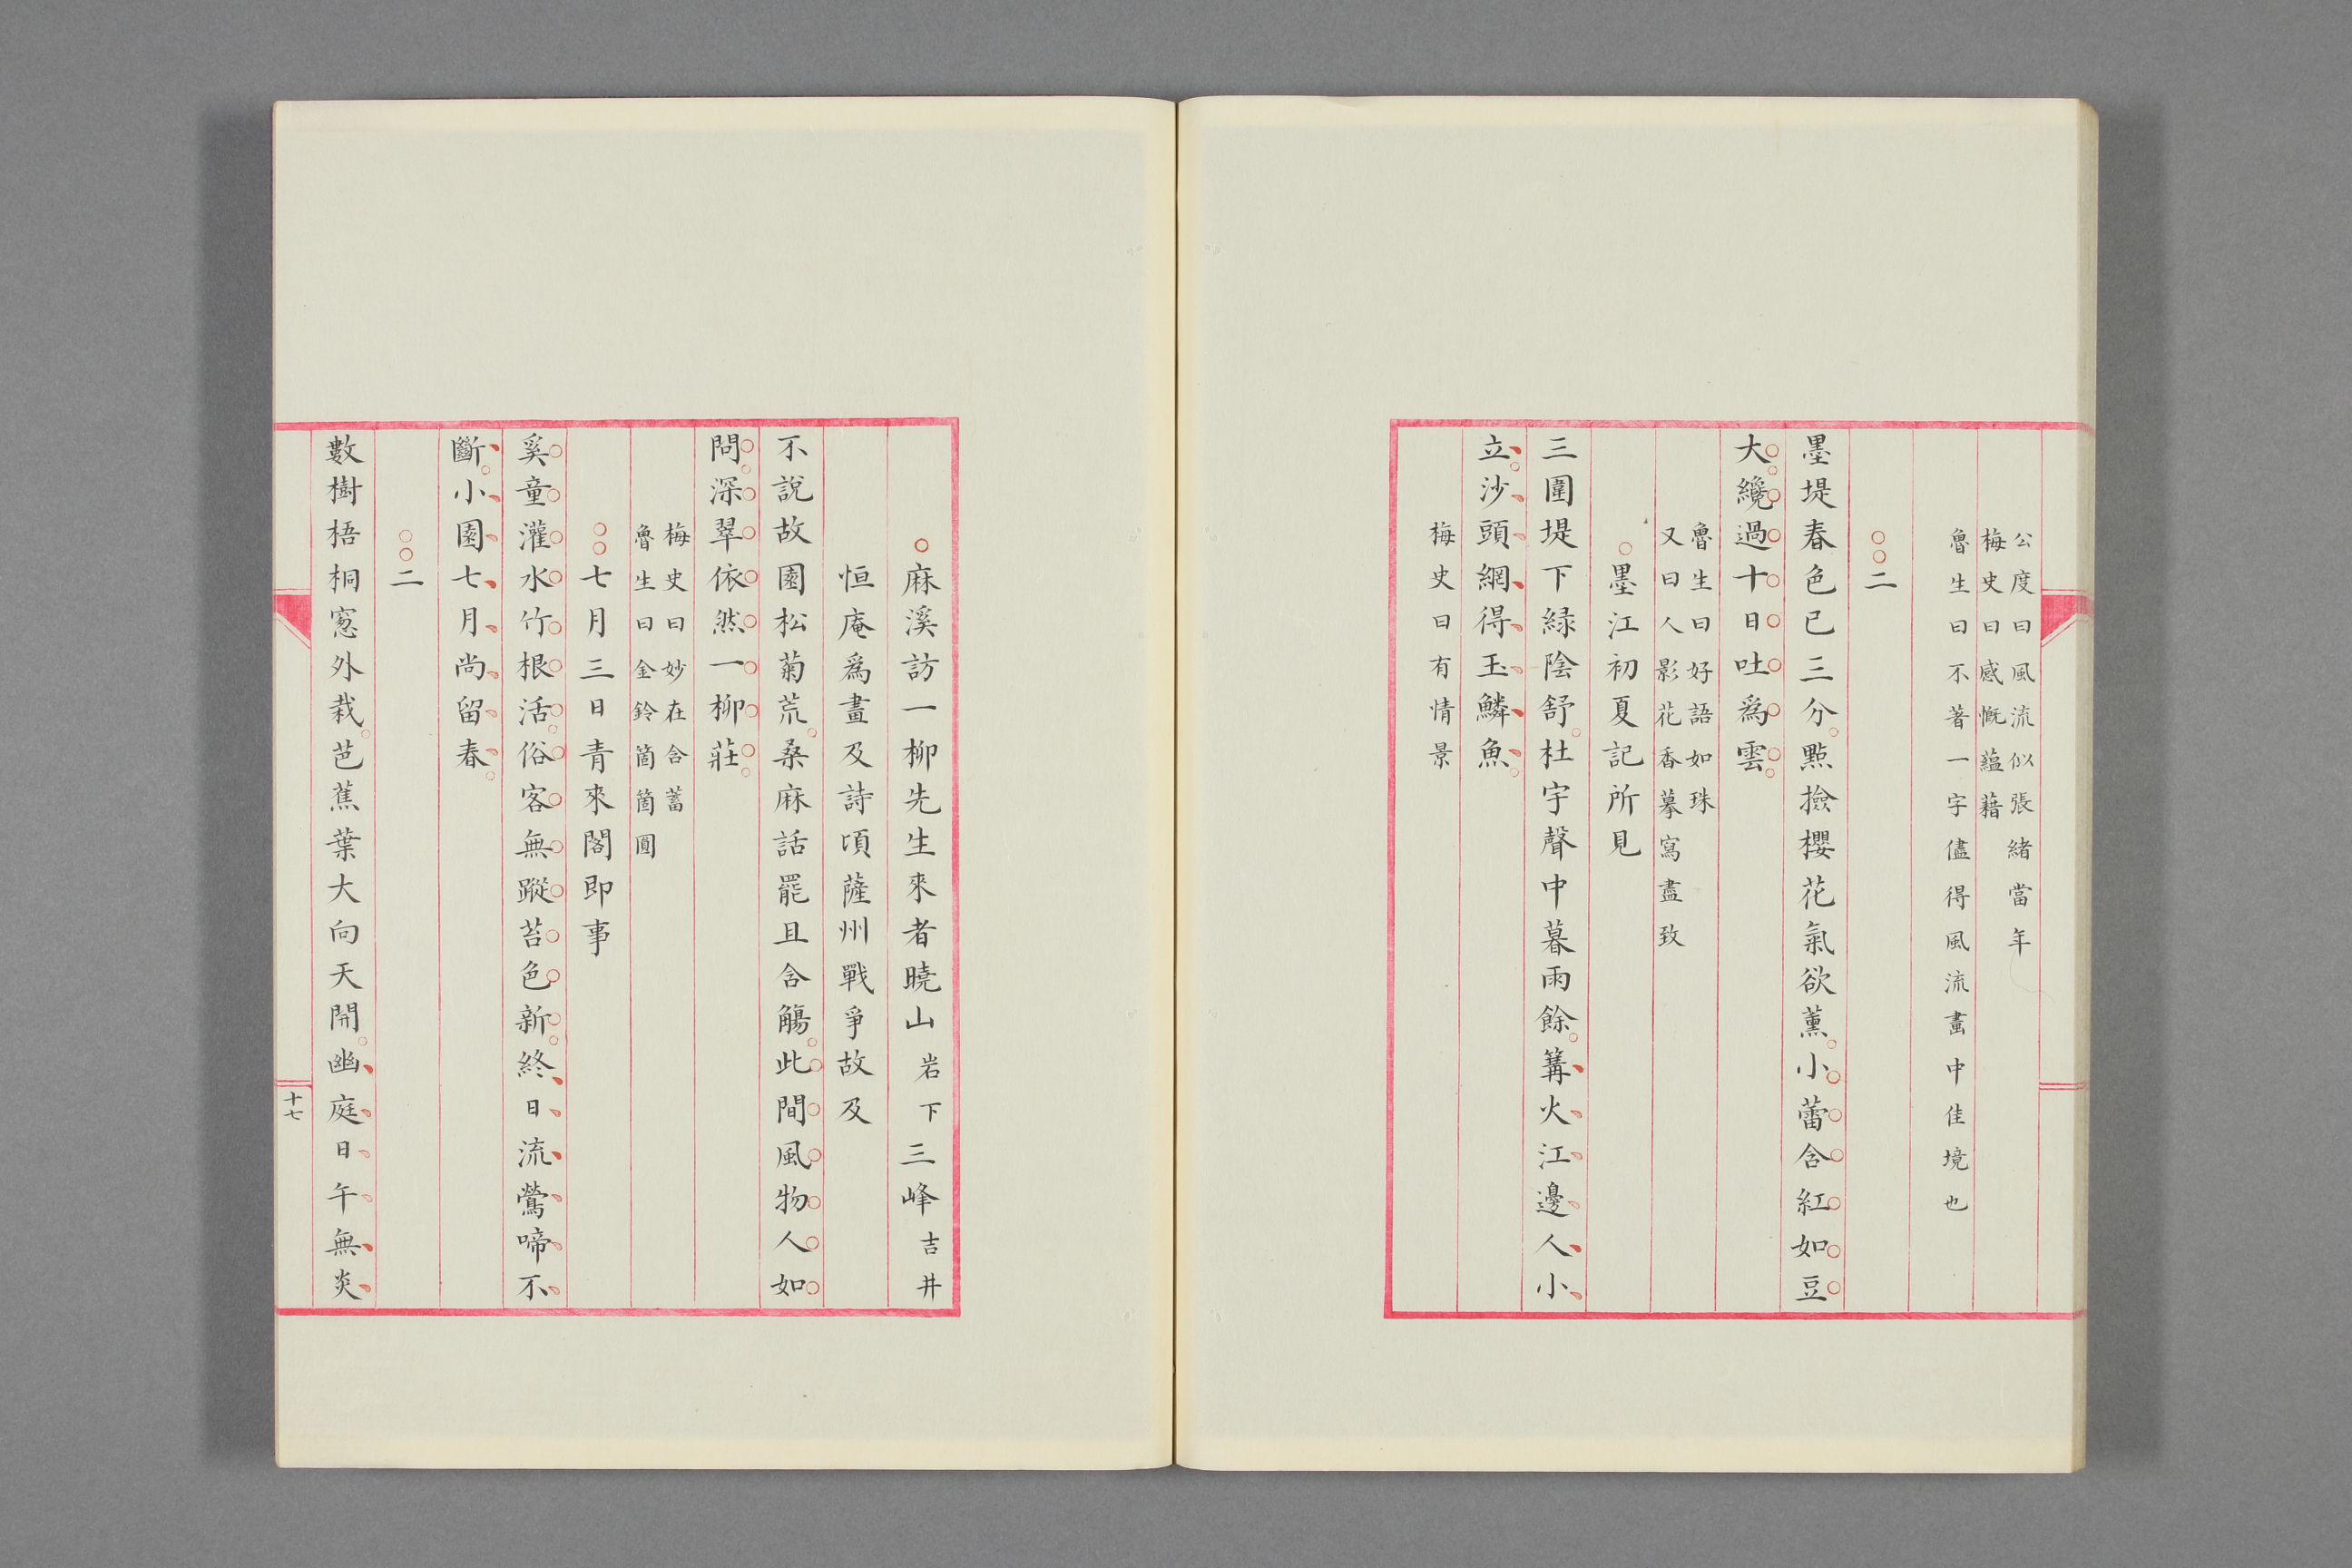 公度曰風流似張緒當年
梅史曰感慨蘊藉
魯生曰不著一字儘得風流畫中佳境也
○○二
墨堤春色已三分。點撿櫻花氣欲薰。小蕾含紅如豆
大。纔過十日吐爲雲。
魯生曰好語如珠
又曰人影花香摹寫盡致
○墨江初夏記所見
三圍堤下緑陰舒。杜宇聲中暮雨餘。篝火江邊人小
立。沙頭網得玉鱗魚。
梅史曰有情景
○麻溪訪一柳先生來者曉山岩下三峰吉井
恒庵爲畫及詩頃薩州戰爭故及
不說故園松菊荒。桑麻話罷且含觴。此間風物人如
問。深翠依然一柳莊。
梅史曰妙在含蓄
魯生曰金鈴箇箇圓
○○七月三日青來閣即事
奚童灌水竹根活。俗客無蹤苔色新。終日流鶯啼不
斷。小園七月尚留春。
○○二
數樹梧桐窻外栽。芭蕉葉大向天開。幽庭日午無炎
十七